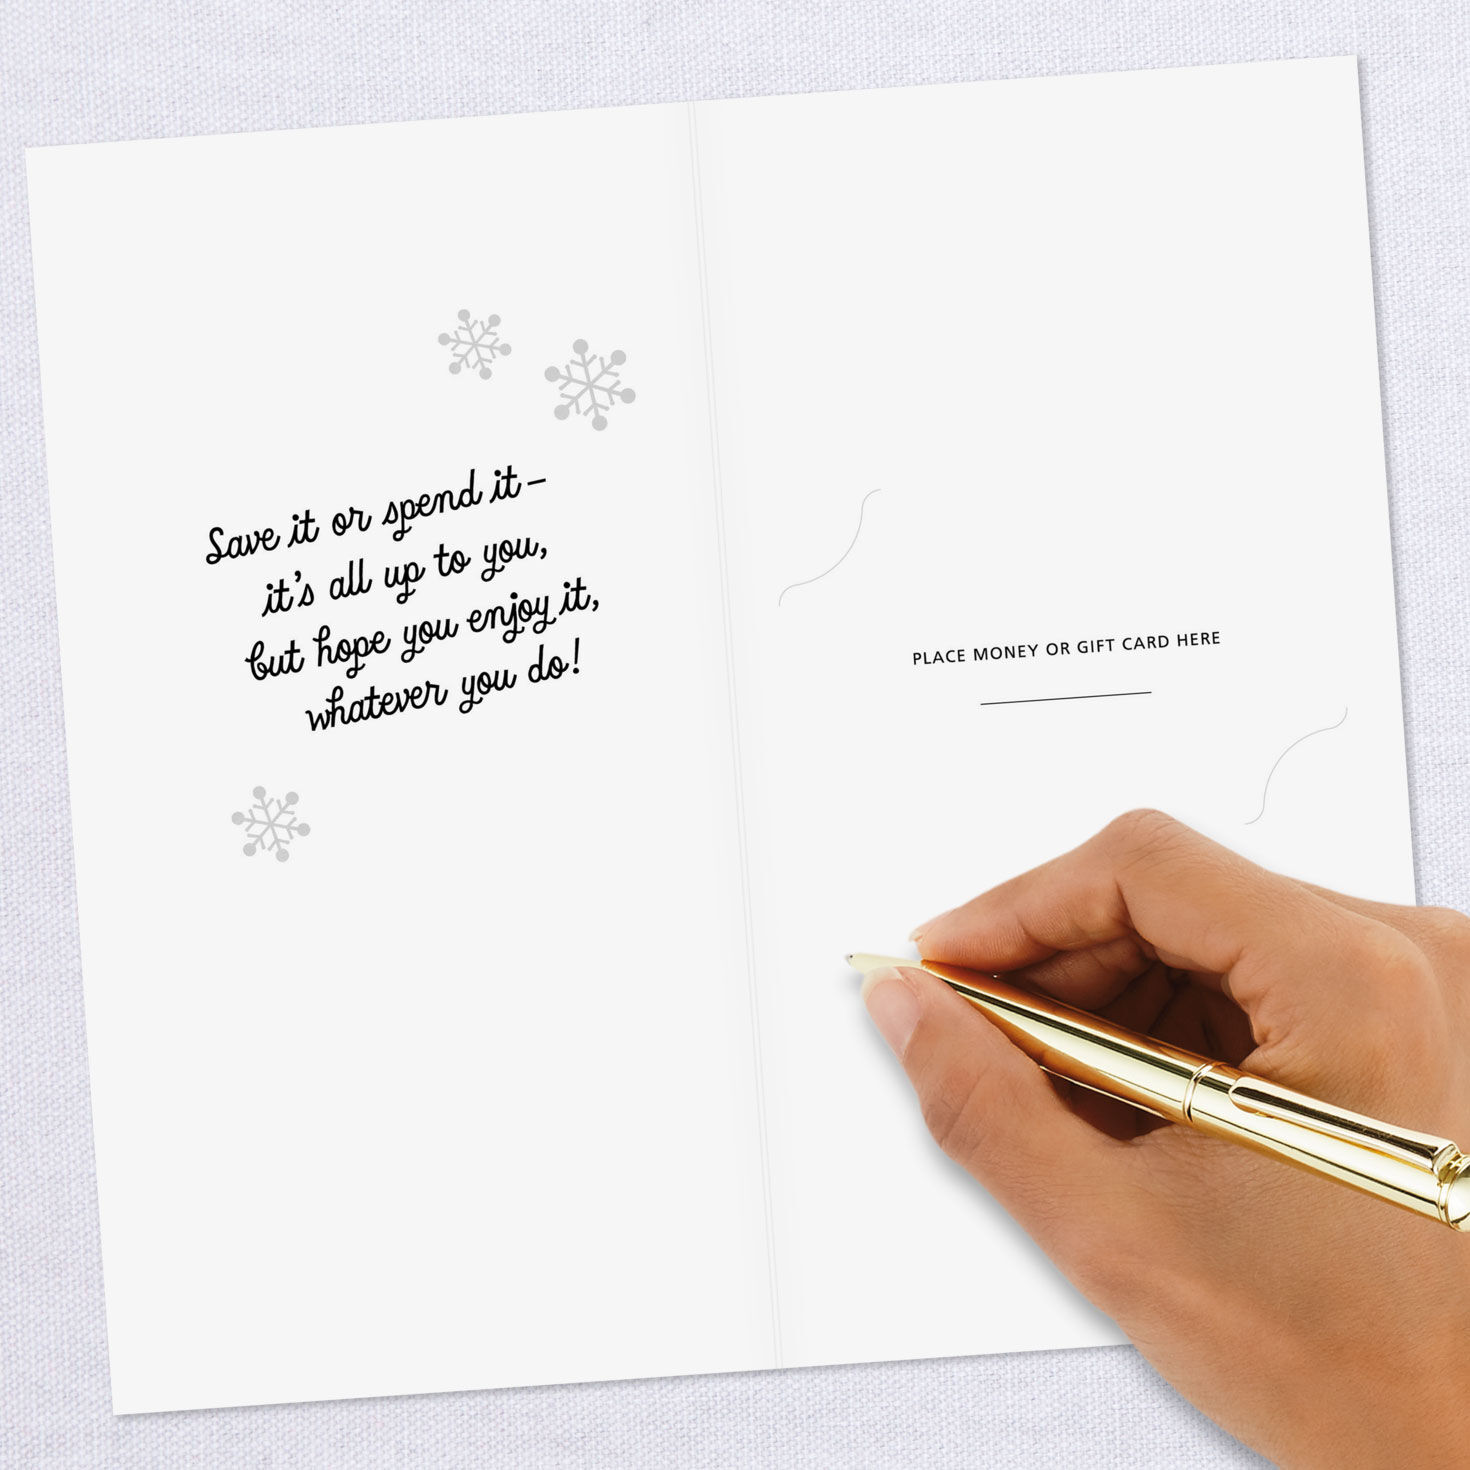 Save it or spend it–
it's all up to you,
but hope you enjoy it,
whatever you do!
PLACE MONEY OR GIFT CARD HERE